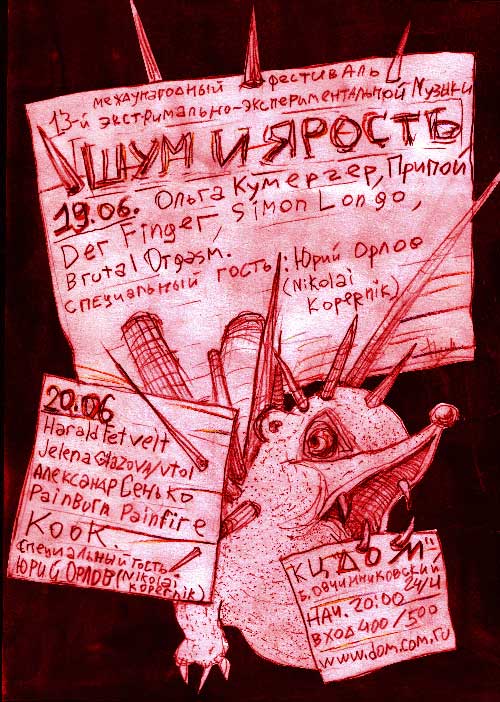 международный фестиваль
13-й экстримально-экспериментальной музыки
"ШУМ И ЯРОСТЬ
19.06. Ольга Кумергер, Припой
Der Finger, Simon Longo,
Brutal Orgasm.
специальный гость: Юрий Орлов
(Nikolai
Kopernik)
20.06
Harald Fetvelt
Jelena Glazova/Vtol
Александр Сенько
PainBorn Painfire
Kook.
Специальный гость
Юрий Орлов (Nikolai
Kopernik)
КЦ„ДОМ"
Б. Овчинниковский
24/4
НАЧ. 20:00
ВХОД 400/500
www.dom.com.ru